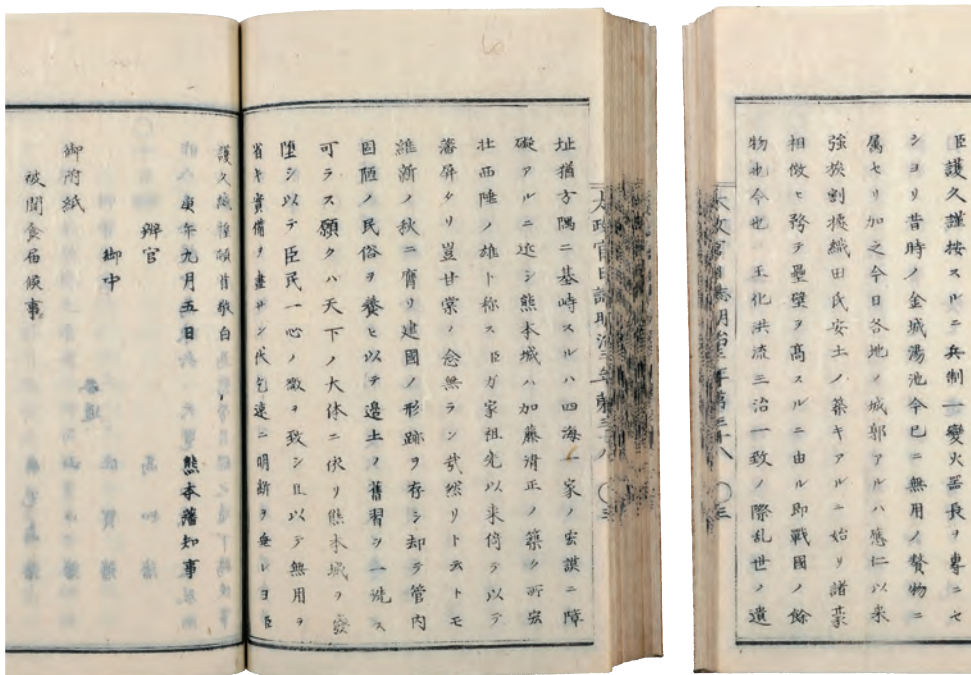 臣護久謹按スルニ兵制一變火器長ヲ專ニセ
シヨリ昔時ノ金城湯池今已ニ無用ノ贅物ニ
属セリ加之今日各地ノ城郭アルハ應仁以来
強族割據織田氏安土ノ築キアルニ始リ諸豪
相倣ヒ務テ壘壁ヲ高スルニ由ル即戰國ノ餘
物也今也王化洪流三治一致ノ際乱世ノ遺
太政官日誌明治三年第三十八
〇三
址猶方隅ニ基峙スルハ四海一家ノ宏謨ニ障
礙アルニ近シ熊本城ハ加藤清正ノ築ク所宏
壮西陲ノ雄ト称ス臣ガ家祖先以来倚テ以テ
藩屏タリ豈甘棠ノ念無ランヤ然リト云トモ
維新ノ秋ニ膺リ建國ノ形跡ヲ存シ却テ管内
固陋ノ民俗ヲ養ヒ以テ邊土ノ舊習ヲ一洗ス
可ラス願クハ天下ノ大体ニ依リ熊本城ヲ廢
堕シ以テ臣民一心ノ微ヲ致シ且以テ無用ヲ
省キ實備ヲ盡サン伏乞速ニ明断ヲ垂レヨ臣
護久誠惶頓首敬白
庚午九月五日 熊本藩知事
辨官
御中
御附紙
被聞食届候事